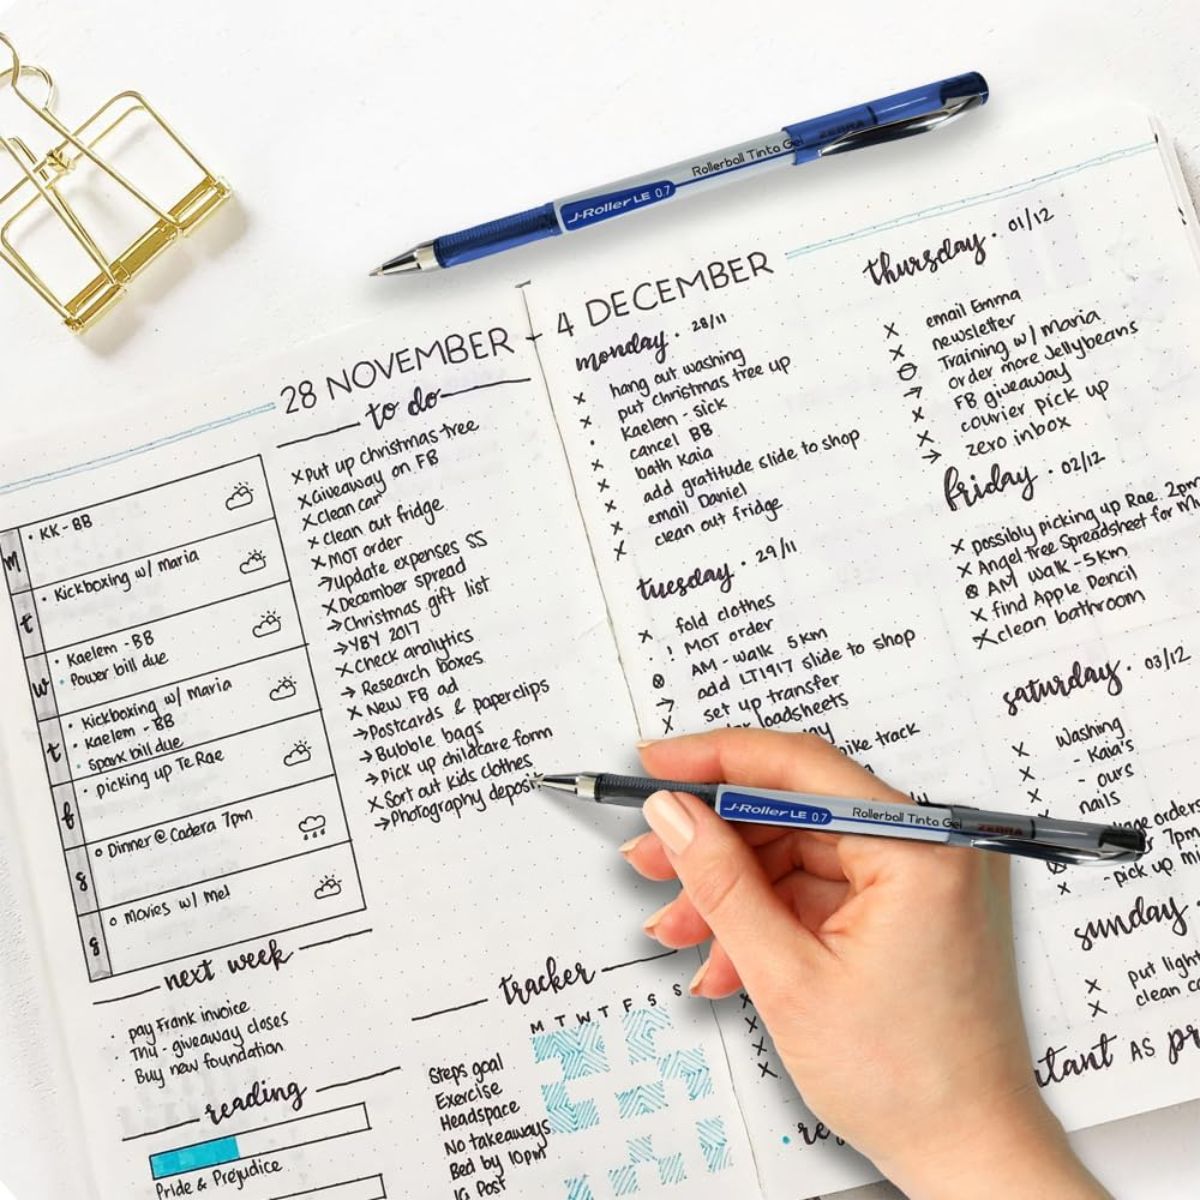 J-Roller LE 0.7 Rollerball Tinta Gel ZEBRA
28 NOVEMBER - 4 DECEMBER
m
• KK - BB
t
• Kickboxing w/ maria
w
• Kaelem - BB
• Power bill due
t
• Kickboxing w/ maria
• Kaelem - BB
• Spark bill due
f
• picking up Te Rae
s
o Dinner @ Cadera 7pm
s
o movies w/ mel
to do
x put up christmas tree
x Giveaway on FB
x clean car
x clean out fridge
x MOT order
→ update expenses SS
x December spread
→ Christmas gift list
→ YBY 2017
x Check analytics
→ Research boxes
x New FB ad
→ Postcards & paperclips
→ Bubble bags
→ Pick up childcare form
x Sort out kids clothes
→ Photography deposit
next week
• pay Frank invoice
• Thu - giveaway closes
• Buy new foundation
reading
Pride & Prejudice
tracker
M T W T F S S
Steps goal
Exercise
Headspace
No takeaways
Bed by 10pm
IG Post
monday • 28/11
x hang out washing
x put christmas tree up
• Kaelem - sick
x cancel BB
x bath Kaia
x add gratitude slide to shop
x email Daniel
x clean out fridge
tuesday • 29/11
x fold clothes
! MOT order
AM - walk 5km
→ add LT1917 slide to shop
x set up transfer
loadsheets
bike track
J-Roller LE 0.7 Rollerball Tinta Gel ZEBRA
thursday • 01/12
x email Emma
x newsletter
Training w/ maria
→ order more Jellybeans
x FB giveaway
x courier pick up
→ zero inbox
friday • 02/12
x possibly picking up Rae 2pm
x Angel tree Spreadsheet for
AM walk - 5km
x find Apple Pencil
x clean bathroom
saturday • 03/12
x Washing
x - Kaia's
x - ours
x nails
orders
7pm
x - pick up
sunday •
x put
x clean
AS